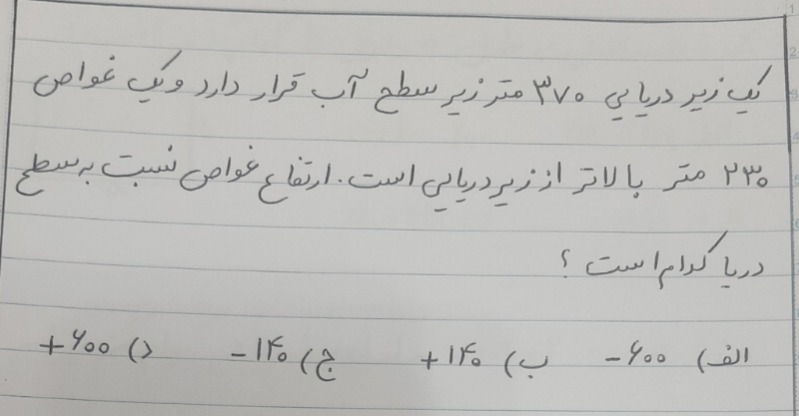 یک زیر دریایی ۳۷۰ متر زیر سطح آب قرار دارد و یک غواص
۲۳۰ متر بالاتر از زیر دریایی است. ارتفاع غواص نسبت به سطح
دریا کدام است ؟
الف) -۶۰۰ ب) +۱۴۰ ج) -۱۴۰ د) +۶۰۰